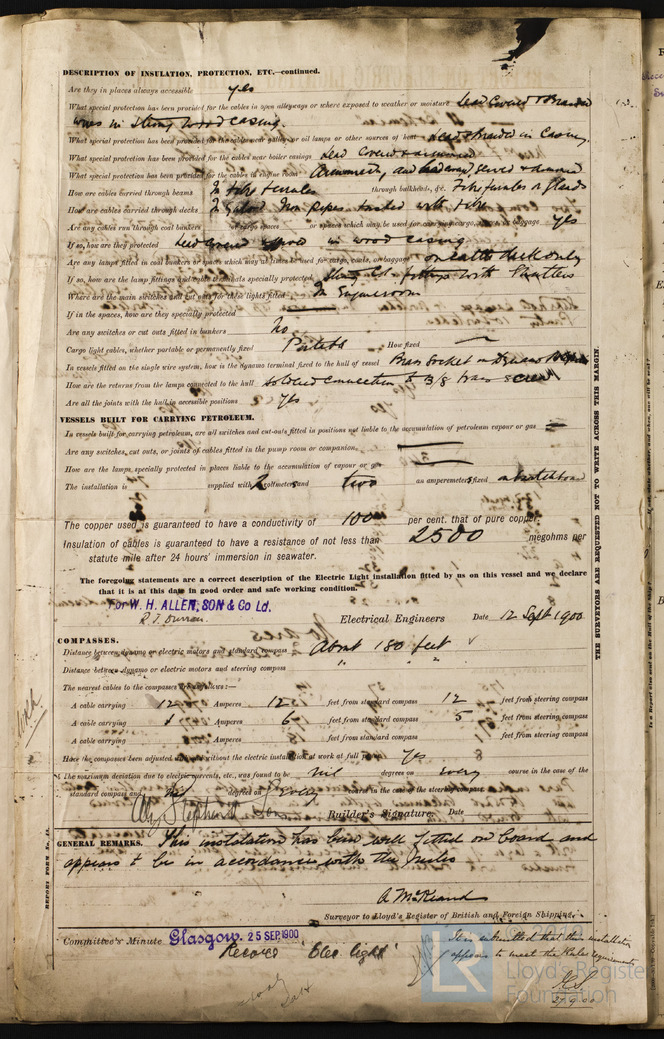 DESCRIPTION OF INSULATION, PROTECTION, ETC.—continued.
Are they in places always accessible yes
What special protection has been provided for the cables in open alleyways or where exposed to weather or moisture Lead Covered & Braided
wires in strong wood casing.
What special protection has been provided for the cables near galleys or oil lamps or other sources of heat Lead & Braided in Casing
What special protection has been provided for the cables near boiler casings Lead Covered & armoured
What special protection has been provided for the cables in engine room Armoured, and
How are cables carried through beams In Fibre Ferrules through bulkheads, &c. Fibre ferrules or glands
How are cables carried through decks In Galvd Iron pipes with Fibre
Are any cables run through coal bunkers or cargo spaces or spaces which may be used for carrying cargo, stores, or baggage yes
If so, how are they protected Lead Covered in wood casing
Are any lamps fitted in coal bunkers or spaces which may at times be used for cargo, coals, or baggage on cattle deck only
If so, how are the lamp fittings and cable terminals specially protected Strong fittings with Shutters
Where are the main switches and cut outs for these lights fitted In Engineroom
If in the spaces, how are they specially protected
Are any switches or cut outs fitted in bunkers no
Cargo light cables, whether portable or permanently fixed Portable How fixed
In vessels fitted on the single wire system, how is the dynamo terminal fixed to the hull of vessel Brass Socket on Dynamo
How are the returns from the lamps connected to the hull soldered connection to 3/8 brass screw
Are all the joints with the hull in accessible positions yes
VESSELS BUILT FOR CARRYING PETROLEUM.
In vessels built for carrying petroleum, are all switches and cut-outs fitted in positions not liable to the accumulation of petroleum vapour or gas
Are any switches, cut outs, or joints of cables fitted in the pump room or companion
How are the lamps specially protected in places liable to the accumulation of vapour or gas
The installation is supplied with 2 voltmeters and two an amperemeters fixed on switchboard
The copper used is guaranteed to have a conductivity of 100 per cent. that of pure copper.
Insulation of cables is guaranteed to have a resistance of not less than 2500 megohms per
statute mile after 24 hours' immersion in seawater.
The foregoing statements are a correct description of the Electric Light installation fitted by us on this vessel and we declare
that it is at this date in good order and safe working condition.
For W. H. ALLEN, SON & Co Ld.
Electrical Engineers Date 12 Sept 1900
COMPASSES.
Distance between dynamo or electric motors and standard compass About 180 feet
Distance between dynamo or electric motors and steering compass " "
The nearest cables to the compasses are as follows:—
A cable carrying 12 Amperes 12 feet from standard compass 12 feet from steering compass
A cable carrying 1 Amperes 6 feet from standard compass 5 feet from steering compass
A cable carrying Amperes feet from standard compass feet from steering compass
Have the compasses been adjusted with and without the electric installation at work at full power yes
The maximum deviation due to electric currents, etc., was found to be nil degrees on every course in the case of the
standard compass and nil degrees on every course in the case of the steering compass
Alex Stephen & Sons Builder's Signature. Date
GENERAL REMARKS. This installation has been well fitted on board and
appears to be in accordance with the rules
A McKeand
Surveyor to Lloyd's Register of British and Foreign Shipping.
Committee's Minute Glasgow. 25 SEP. 1900
Record 'Elec light'
It is submitted that this installation
appears to meet the Rules requirements
27.9.00
REPORT FORM No.
THE SURVEYORS ARE REQUESTED NOT TO WRITE ACROSS THIS MARGIN.
LR
Lloyd's Register
Foundation